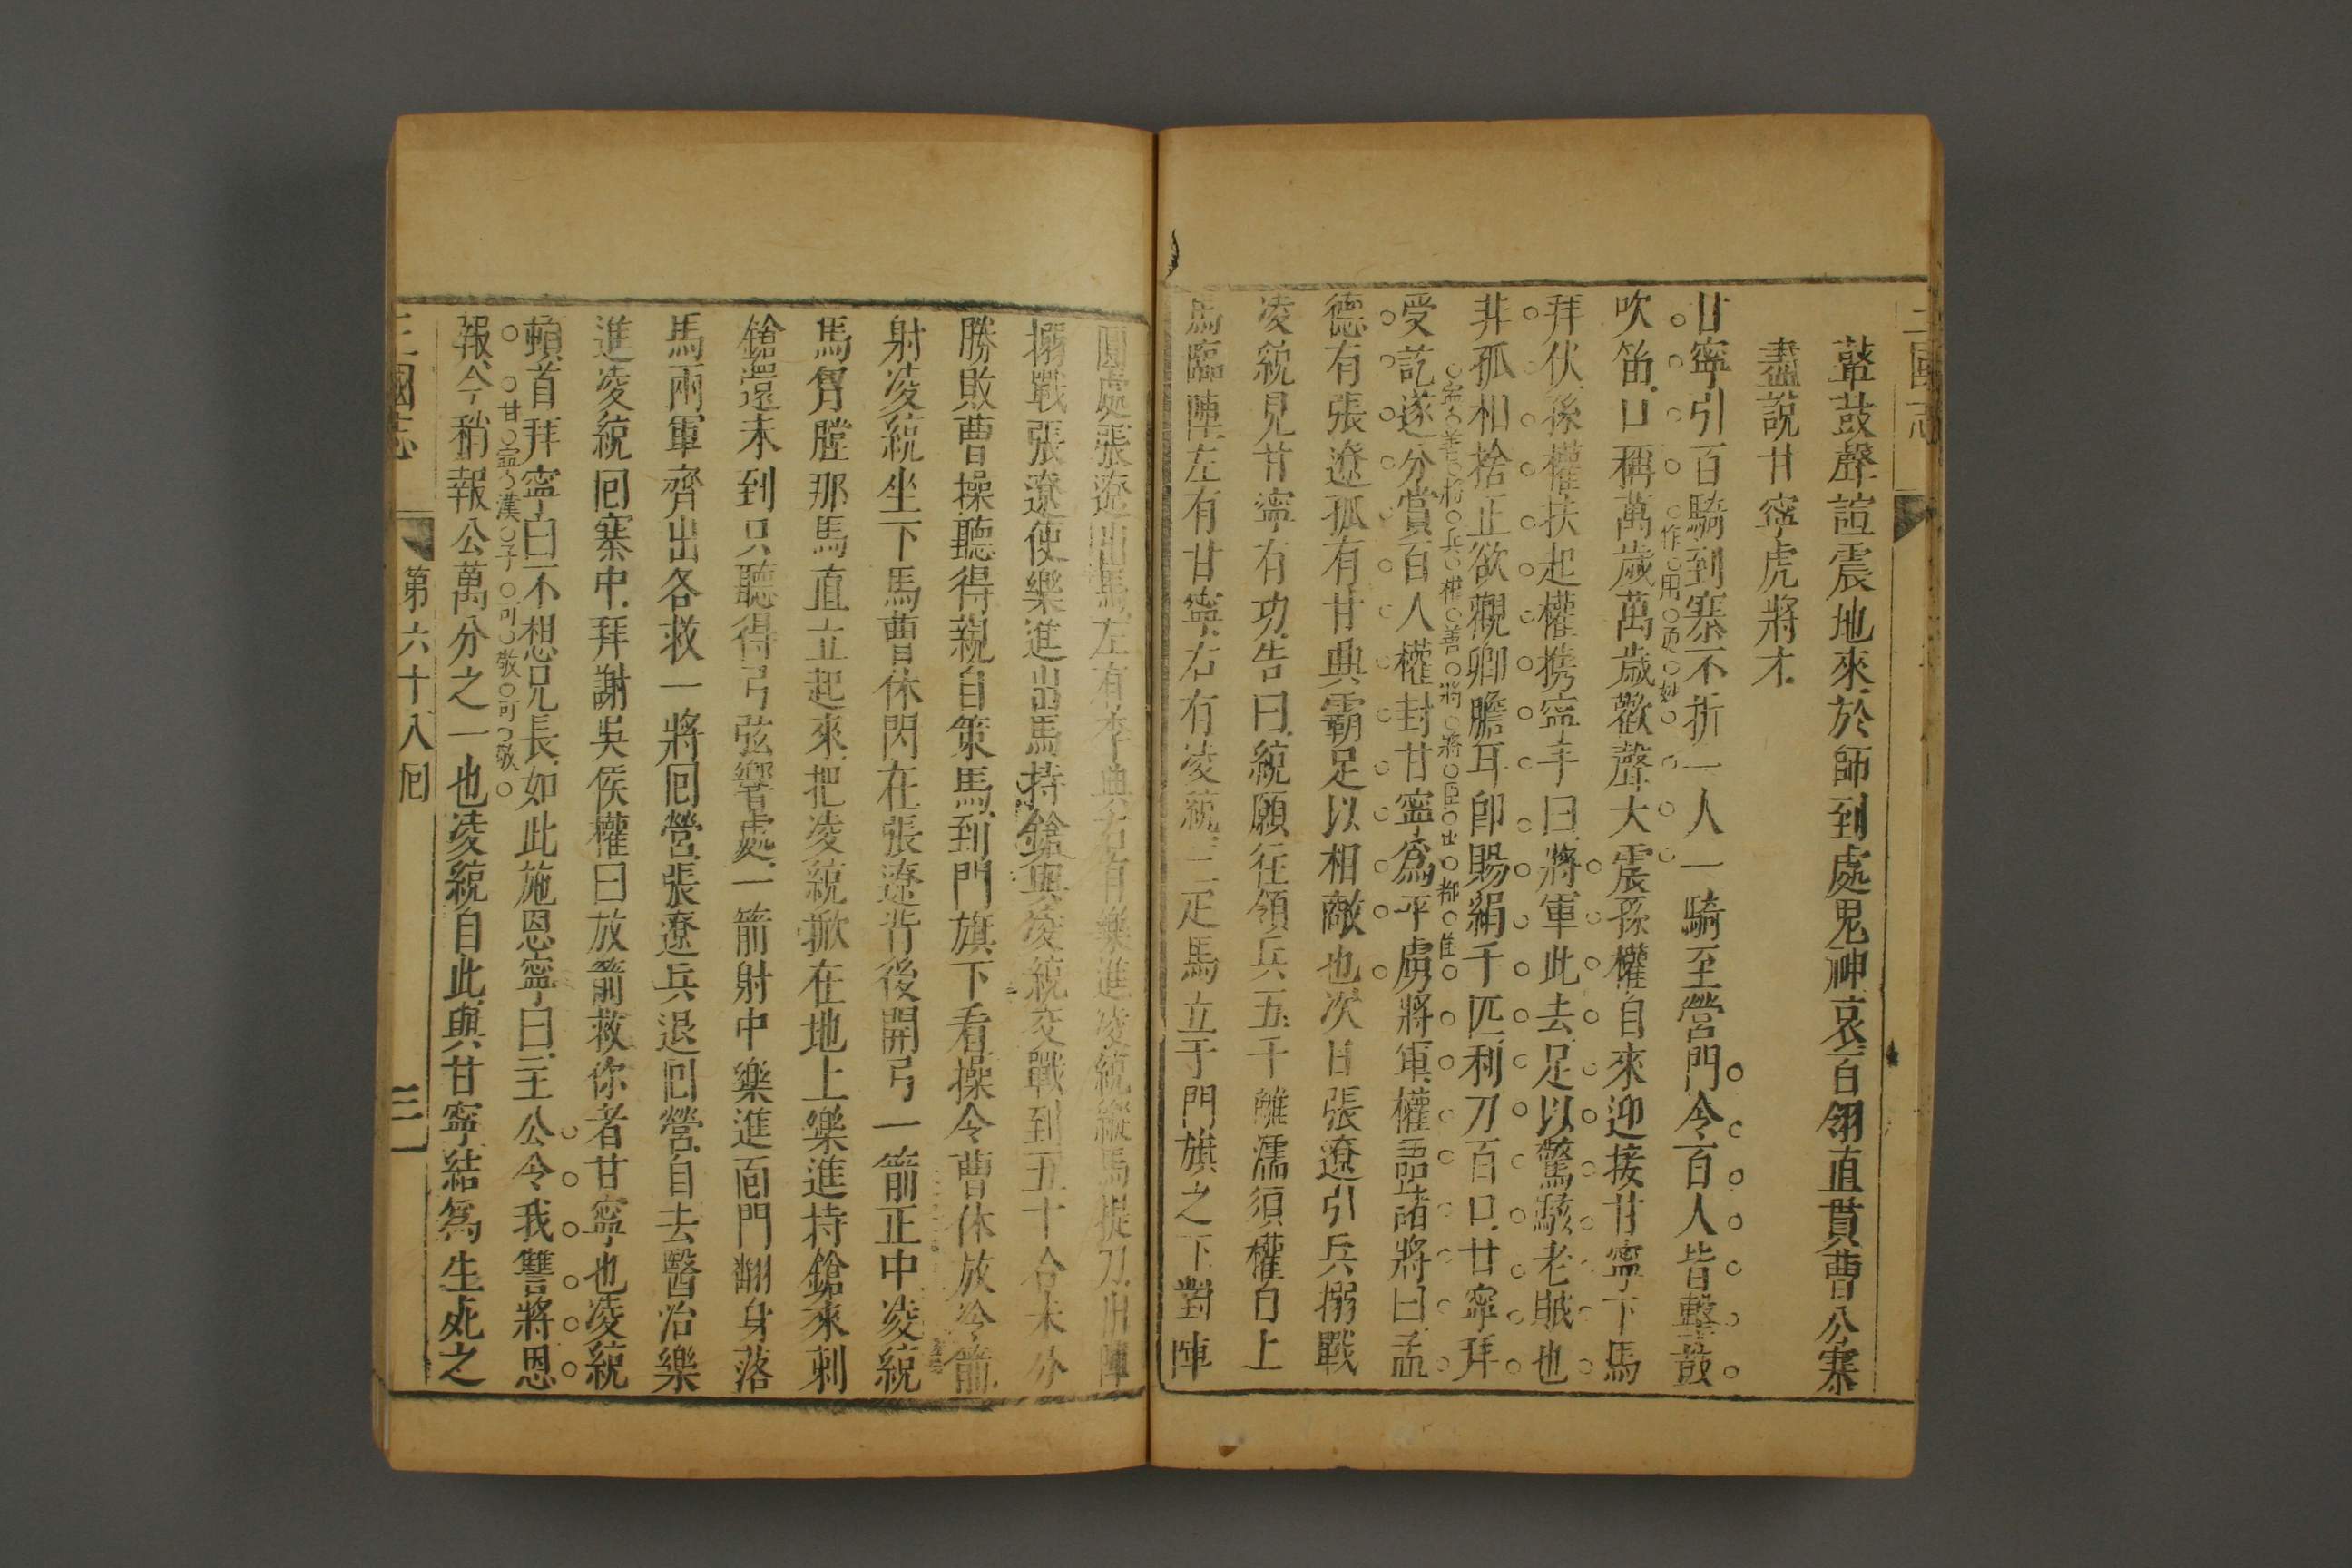 三國志
鼙鼓聲諠震地來於師到處鬼神哀百翎直貫曹公寨
盡說甘寧虎將才
甘寧引百騎到寨不折一人一騎至營門令百人皆擊鼓
作用而妙
吹笛口稱萬歲萬歲歡聲大震孫權自來迎接甘寧下馬
拜伏孫權扶起權携寧手曰將軍此去足以驚駭老賊也
非孤相捨正欲觀卿膽耳卽賜絹千匹利刀百口甘寧拜
寧善將兵權善將將臣主都佳
受訖遂分賞百人權封甘寧爲平虜將軍權語諸將曰孟
德有張遼孤有甘興霸足以相敵也次日張遼引兵搦戰
凌統見甘寧有功告曰統願往領兵五千離濡須權自上
馬臨陣左有甘寧右有凌統三疋馬立于門旗之下對陣
圓處張遼出馬左有李典右有樂進凌統縱馬提刀出陣
搦戰張遼使樂進出馬持鎗與凌統交戰到五十合未分
勝敗曹操聽得親自策馬到門旗下看操令曹休放冷箭
射凌統坐下馬曹休閃在張遼背後開弓一箭正中凌統
馬胷膛那馬直立起來把凌統掀在地上樂進持鎗來刺
鎗還未到只聽得弓弦響處一箭射中樂進面門翻身落
馬兩軍齊出各救一將囘營張遼兵退囘營自去醫治樂
進凌統囘寨中拜謝吳侯權曰放箭救你者甘寧也凌統
頓首拜寧曰不想兄長如此施恩寧曰主公令我讐將恩
甘寧漢子可敬可敬
報今稍報公萬分之一也凌統自此與甘寧結爲生死之
三國志
第六十八囘
三